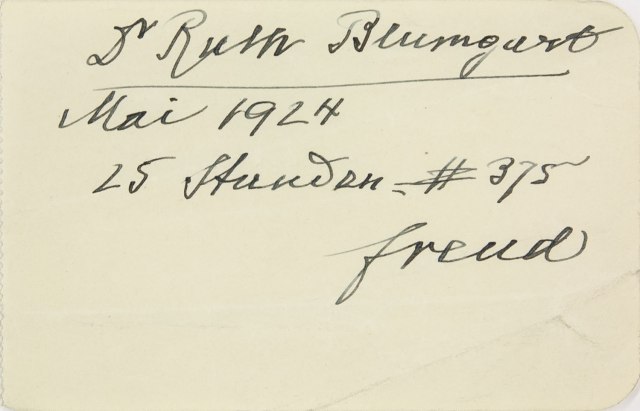 Dr Ruth Blumgart
Mai 1924
25 Stunden = # 375
Freud